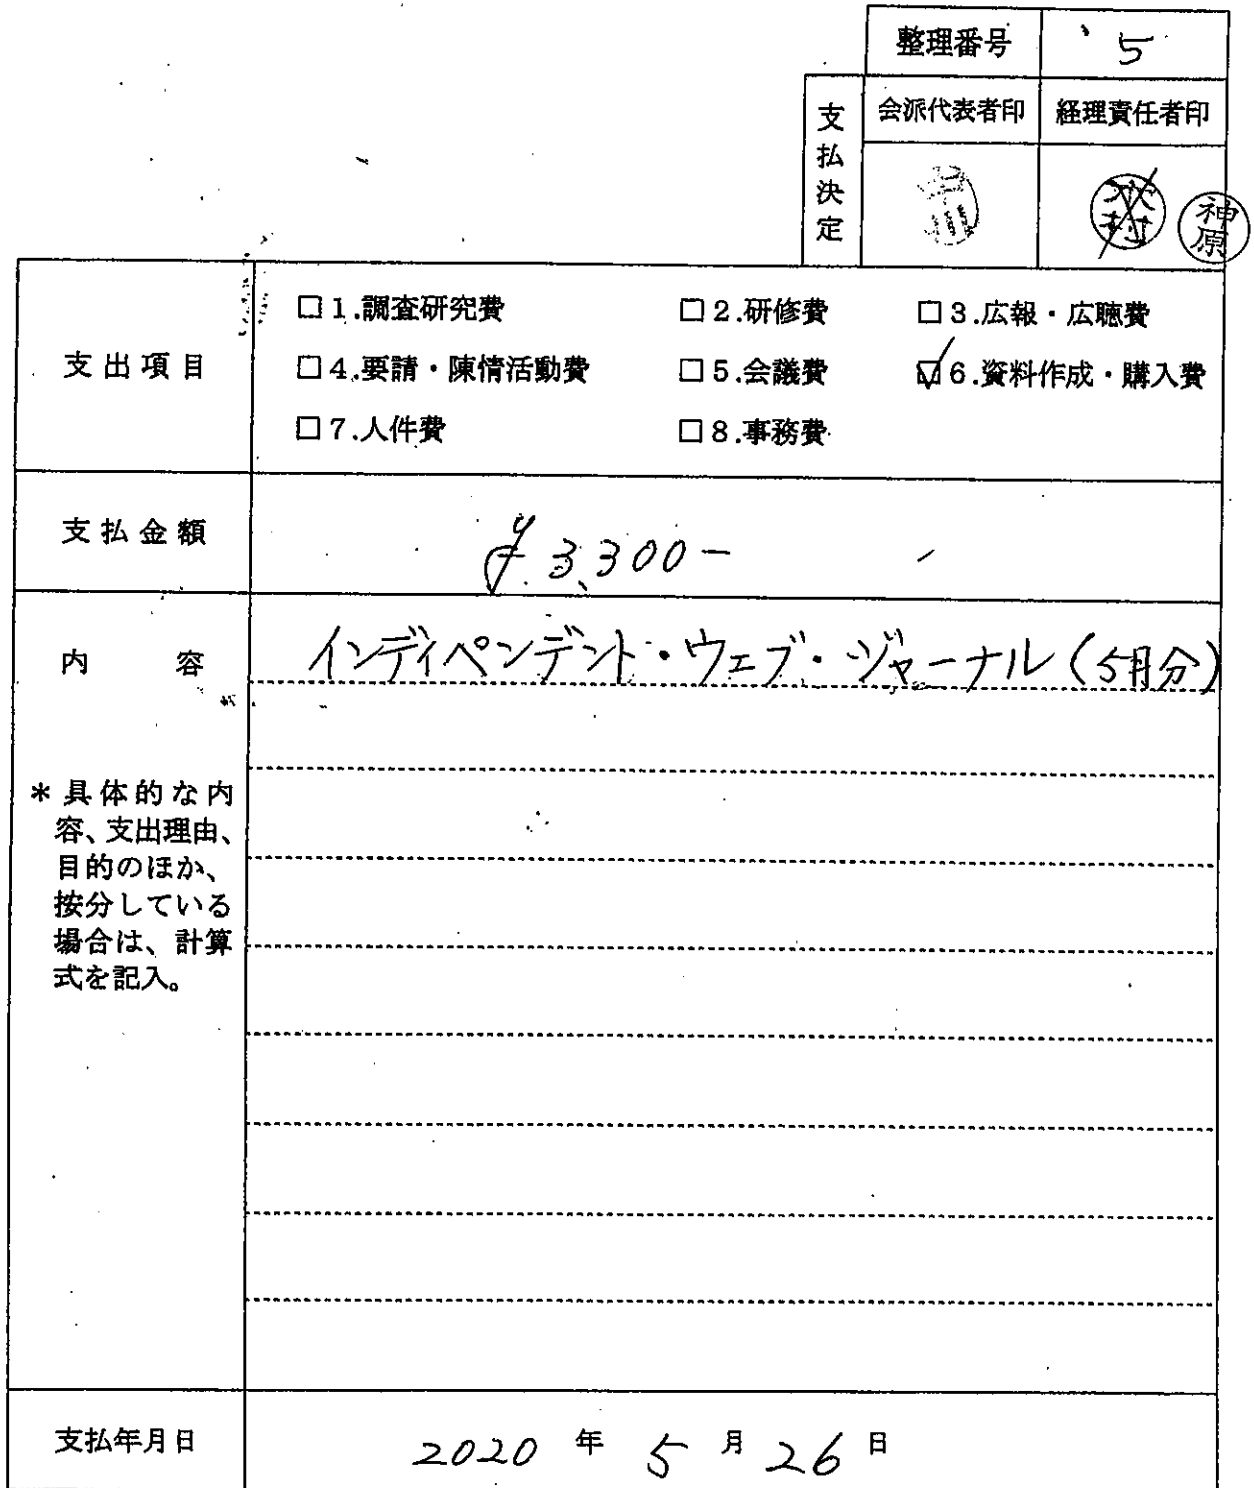 整理番号 5
支払決定
会派代表者印 経理責任者印
神原
支出項目
□1.調査研究費 □2.研修費 □3.広報・広聴費
□4.要請・陳情活動費 □5.会議費 ☑6.資料作成・購入費
□7.人件費 □8.事務費
支払金額 ¥3,300-
内容 インディペンデント・ウェブ・ジャーナル(5月分)
*具体的な内
容、支出理由、
目的のほか、
按分している
場合は、計算
式を記入。
支払年月日 2020年5月26日